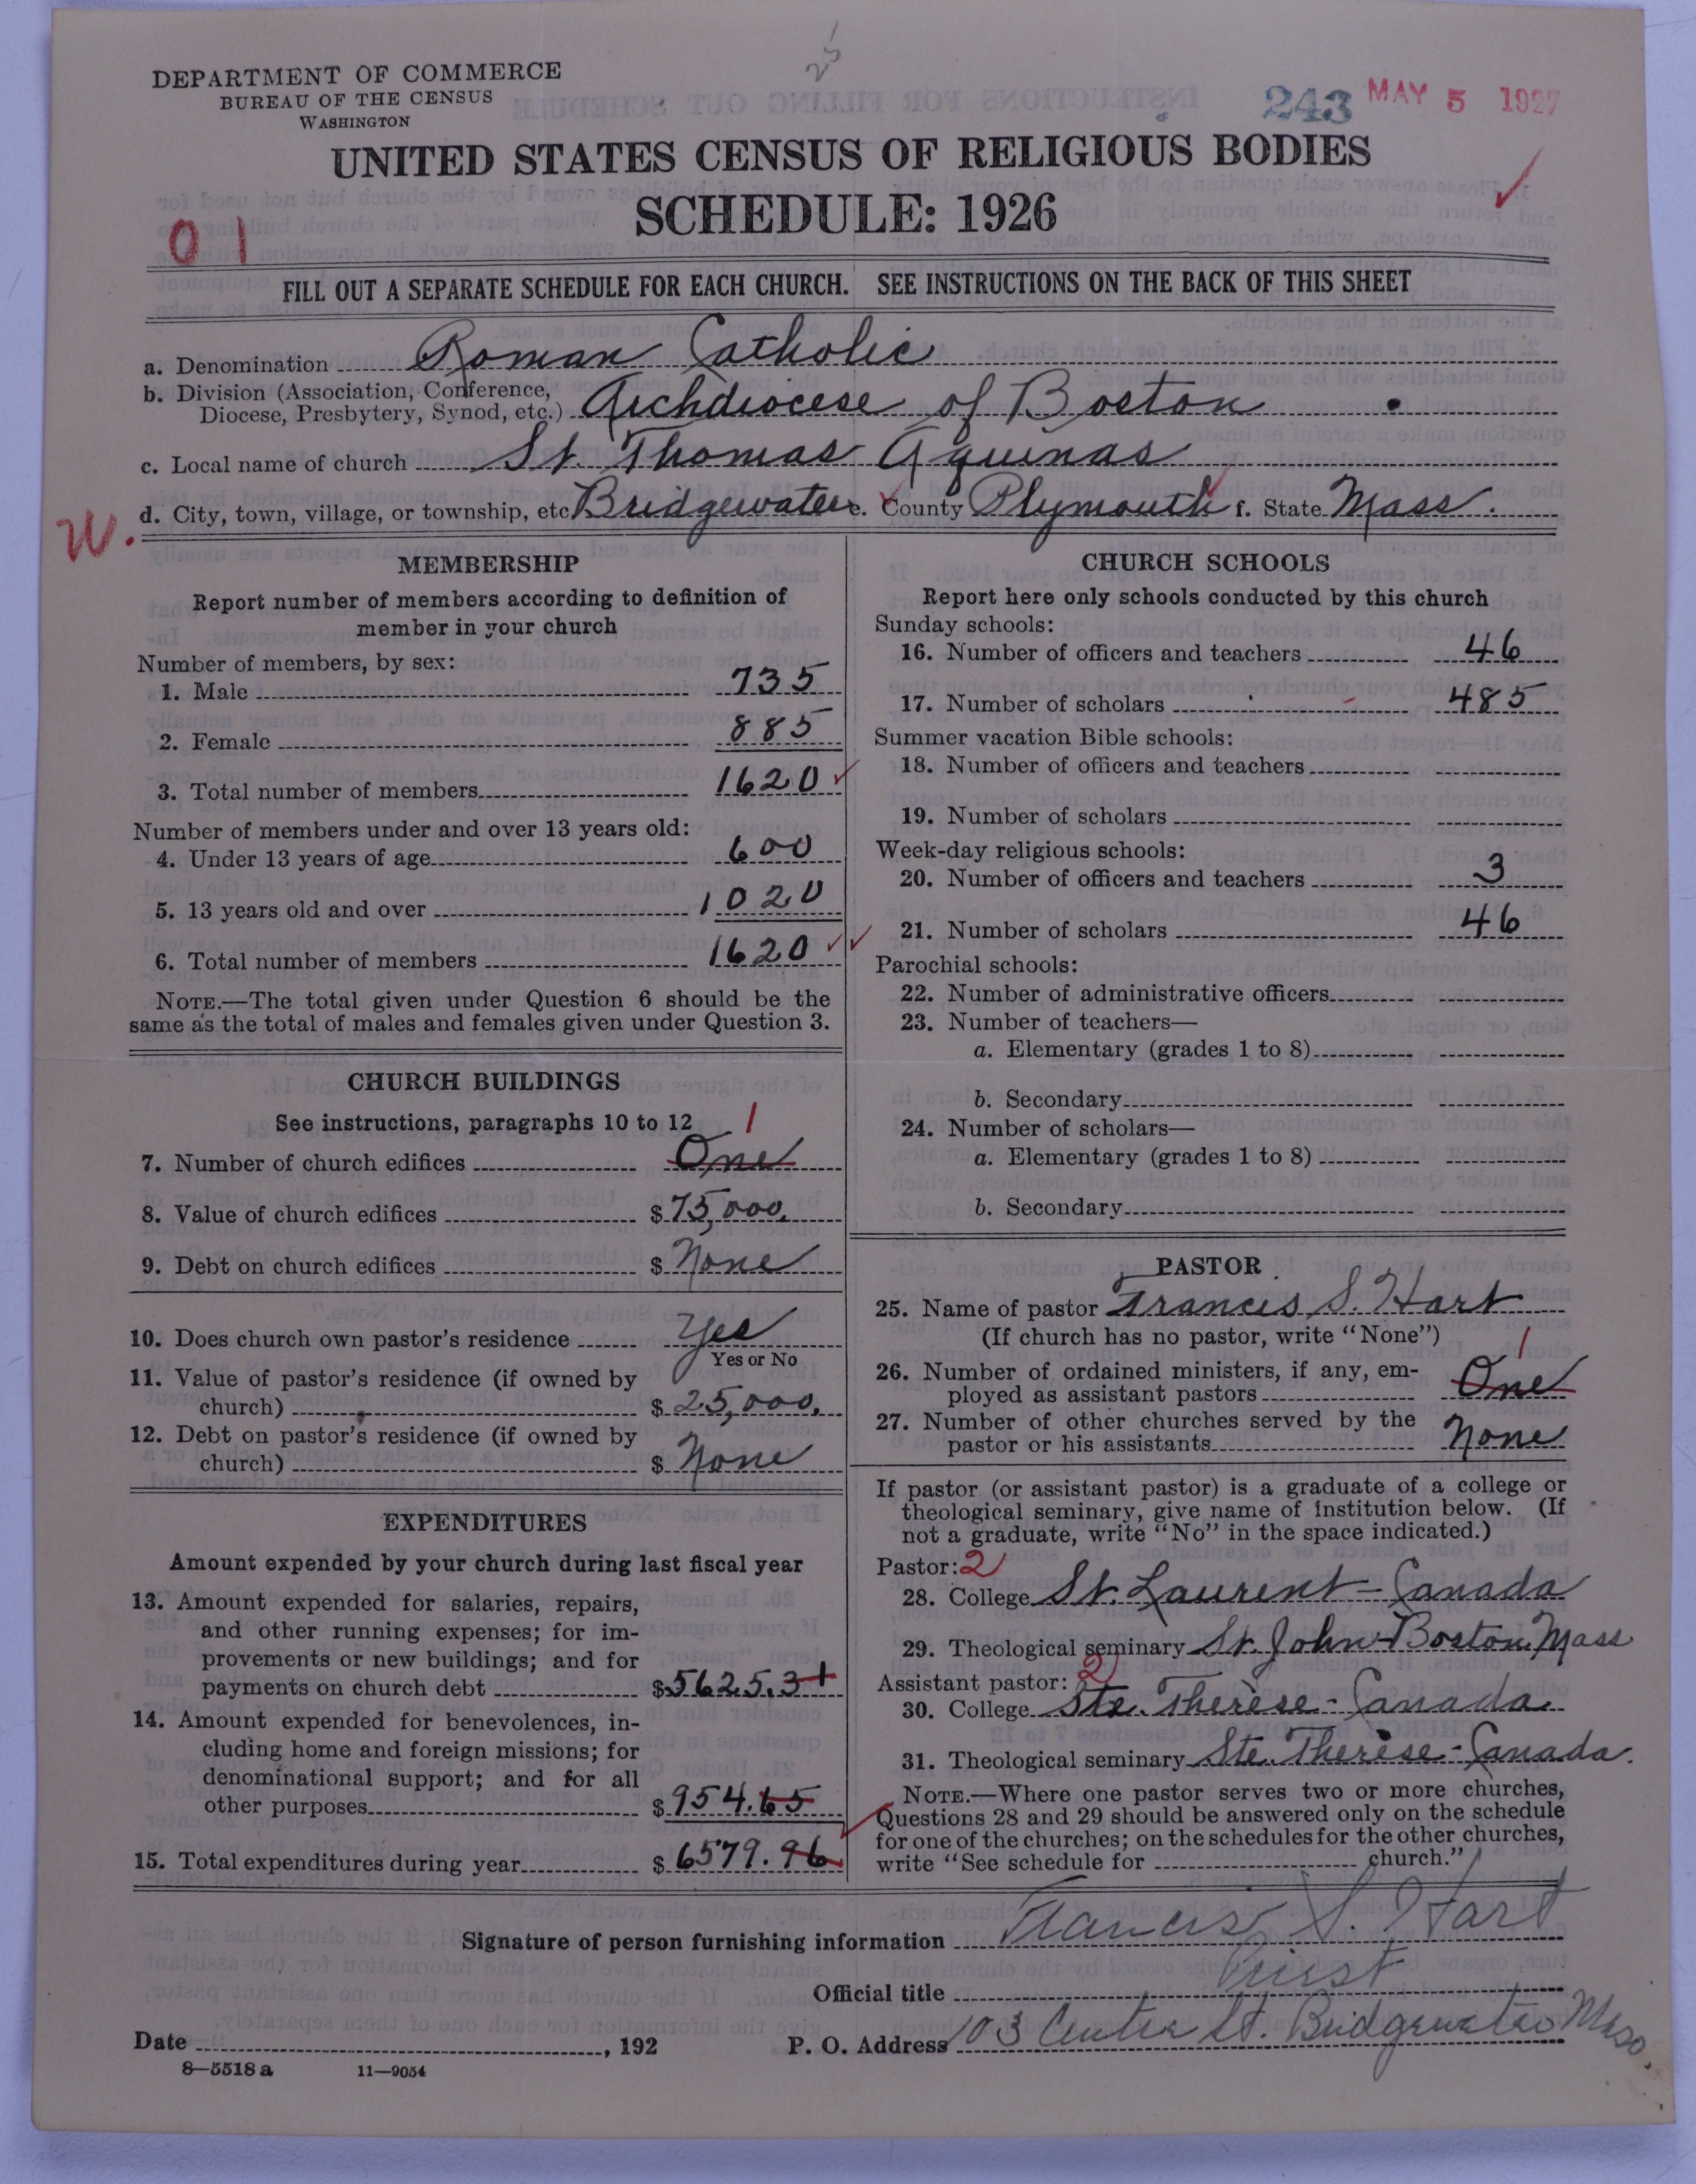 25
DEPARTMENT OF COMMERCE
BUREAU OF THE CENSUS
WASHINGTON
243 MAY 5 1927
UNITED STATES CENSUS OF RELIGIOUS BODIES
SCHEDULE: 1926
01
FILL OUT A SEPARATE SCHEDULE FOR EACH CHURCH. SEE INSTRUCTIONS ON THE BACK OF THIS SHEET
a. Denomination Roman Catholic
b. Division (Association, Conference,
Diocese, Presbytery, Synod, etc.) Archdiocese of Boston
c. Local name of church St. Thomas Aquinas
W. d. City, town, village, or township, etc Bridgewater e. County Plymouth f. State Mass.
MEMBERSHIP
Report number of members according to definition of
member in your church
Number of members, by sex:
1. Male 735
2. Female 885
3. Total number of members 1620
Number of members under and over 13 years old:
4. Under 13 years of age 600
5. 13 years old and over 1020
6. Total number of members 1620
NOTE.—The total given under Question 6 should be the
same as the total of males and females given under Question 3.
CHURCH BUILDINGS
See instructions, paragraphs 10 to 12
1
7. Number of church edifices One
8. Value of church edifices $ 75,000.
9. Debt on church edifices $ None
10. Does church own pastor's residence Yes
Yes or No
11. Value of pastor's residence (if owned by
church) $ 25,000.
12. Debt on pastor's residence (if owned by
church) $ None
EXPENDITURES
Amount expended by your church during last fiscal year
13. Amount expended for salaries, repairs,
and other running expenses; for im-
provements or new buildings; and for
payments on church debt $ 5625.31
14. Amount expended for benevolences, in-
cluding home and foreign missions; for
denominational support; and for all
other purposes $ 954.65
15. Total expenditures during year $ 6579.96
CHURCH SCHOOLS
Report here only schools conducted by this church
Sunday schools:
16. Number of officers and teachers 46
17. Number of scholars 485
Summer vacation Bible schools:
18. Number of officers and teachers
19. Number of scholars
Week-day religious schools:
20. Number of officers and teachers 3
21. Number of scholars 46
Parochial schools:
22. Number of administrative officers
23. Number of teachers—
a. Elementary (grades 1 to 8)
b. Secondary
24. Number of scholars—
a. Elementary (grades 1 to 8)
b. Secondary
PASTOR
25. Name of pastor Francis S. Hart
(If church has no pastor, write "None")
1
26. Number of ordained ministers, if any, em-
ployed as assistant pastors One
27. Number of other churches served by the
pastor or his assistants None
If pastor (or assistant pastor) is a graduate of a college or
theological seminary, give name of institution below. (If
not a graduate, write "No" in the space indicated.)
Pastor: 2
28. College St. Laurent - Canada
29. Theological seminary St. John - Boston Mass
Assistant pastor: 2
30. College Ste. Therèse - Canada
31. Theological seminary Ste. Therèse - Canada.
NOTE.—Where one pastor serves two or more churches,
Questions 28 and 29 should be answered only on the schedule
for one of the churches; on the schedules for the other churches,
write "See schedule for church."
Signature of person furnishing information Francis S. Hart
Official title Priest
Date , 192 P. O. Address 103 Center St. Bridgewater Mass.
8—5518 a 11—9054